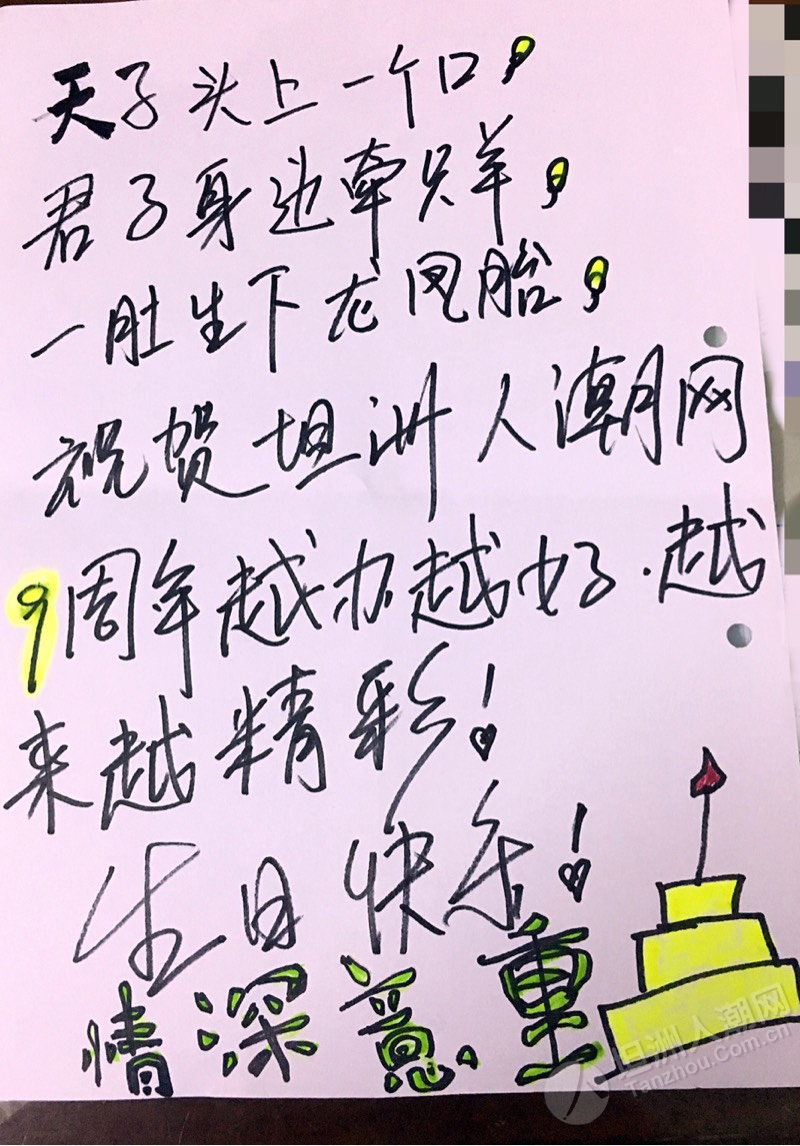 天子头上一个口，
君子身边牵只羊，
一肚生下龙凤胎，
祝贺坦洲人潮网
9周年越办越好.越
来越精彩！
生日快乐！
情深意重
坦洲人潮网
Tanzhou.Com.cn